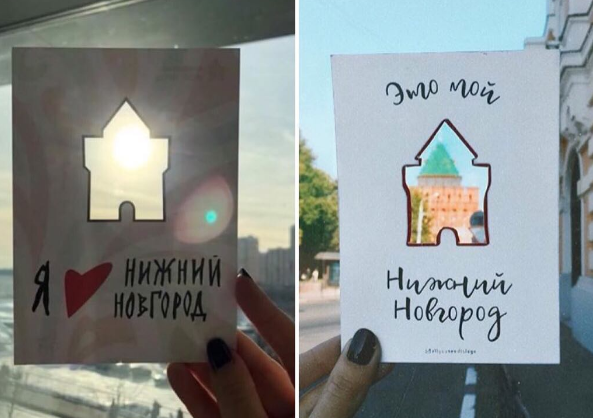 Я ❤ НИЖНИЙ
НОВГОРОД
Это мой
Нижний
Новгород